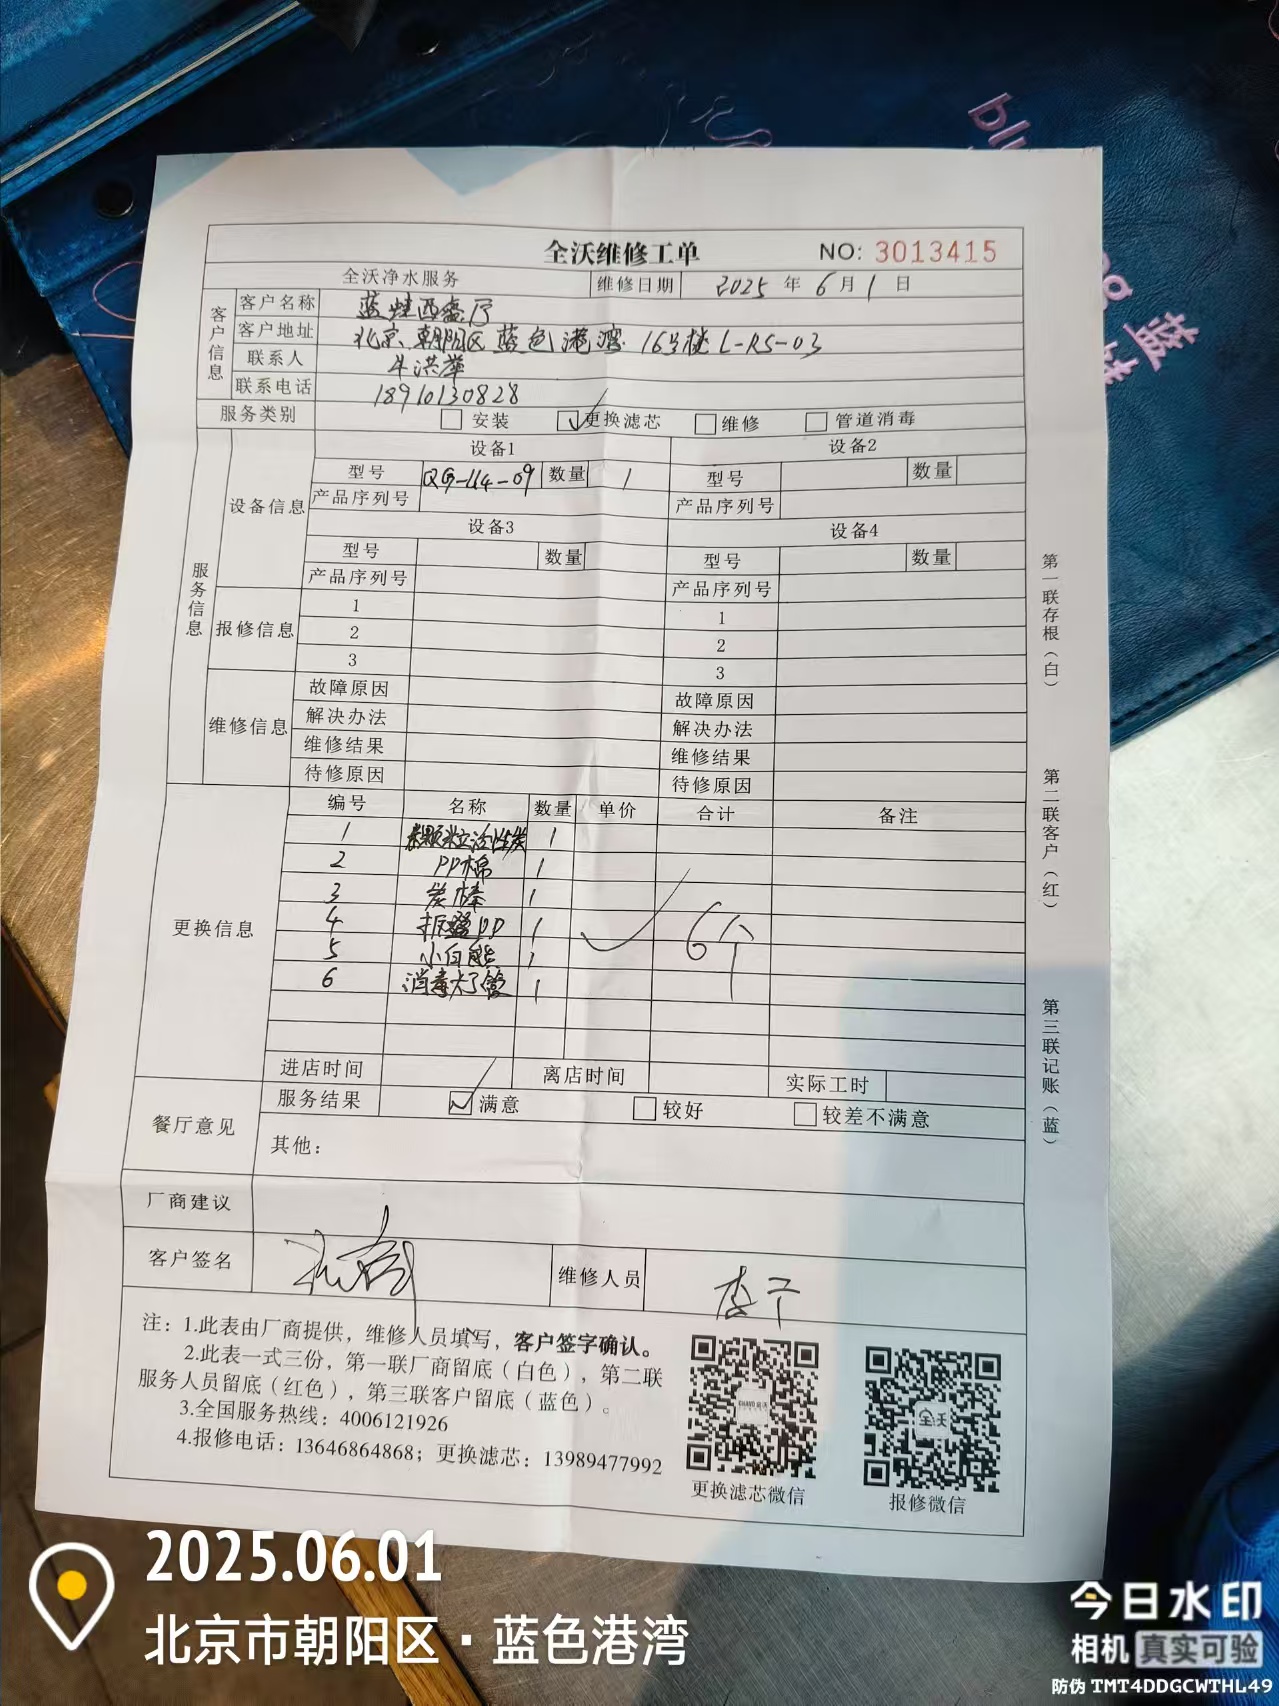 全沃维修工单 NO: 3013415
全沃净水服务 维修日期 2025 年 6 月 1 日
客户信息
客户名称 蓝蛙西餐厅
客户地址 北京朝阳区蓝色港湾16号楼L-RS-03
联系人 牛洪苹
联系电话 18910130828
服务类别 安装 更换滤芯 维修 管道消毒
服务信息
设备信息
设备1 设备2
型号 QG-U4-09 数量 1 型号 数量
产品序列号 产品序列号
设备3 设备4
型号 数量 型号 数量
产品序列号 产品序列号
报修信息
1 1
2 2
3 3
维修信息
故障原因 故障原因
解决办法 解决办法
维修结果 维修结果
待修原因 待修原因
更换信息
编号 名称 数量 单价 合计 备注
1 颗粒活性炭 1
2 PP棉 1
3 炭棒 1
4 PP 1 6个
5 小白熊 1
6 消毒灯管 1
进店时间 离店时间 实际工时
餐厅意见
服务结果 满意 较好 较差不满意
其他：
厂商建议
客户签名 维修人员 李宁
注：1.此表由厂商提供，维修人员填写，客户签字确认。
2.此表一式三份，第一联厂商留底（白色），第二联
服务人员留底（红色），第三联客户留底（蓝色）。
3.全国服务热线：4006121926
4.报修电话：13646864868；更换滤芯：13989477992
更换滤芯微信 报修微信
全沃
第一联存根（白）
第二联客户（红）
第三联记账（蓝）
蓝蛙
2025.06.01
北京市朝阳区·蓝色港湾
今日水印
相机 真实可验
防伪 TMT4DDGCWTHL49